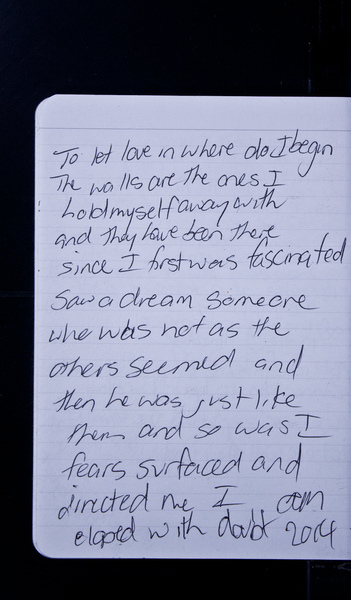 To let love in where do I begin
The walls are the ones I
hold myself away with
and they have been there
since I first was fascinated
Saw a dream someone
who was not as the
others seemed and
then he was just like
them and so was I
fears surfaced and
directed me I am
eloped with doubt 2014